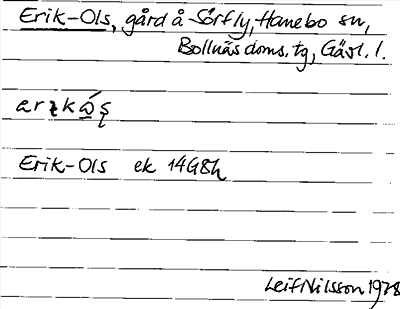 Erik-Ols, gård å Sörfly, Hanebo sn,
Bollnäs doms. tg, Gävl. l.
Erik-Ols ek 14G8h
Leif Nilsson 1928